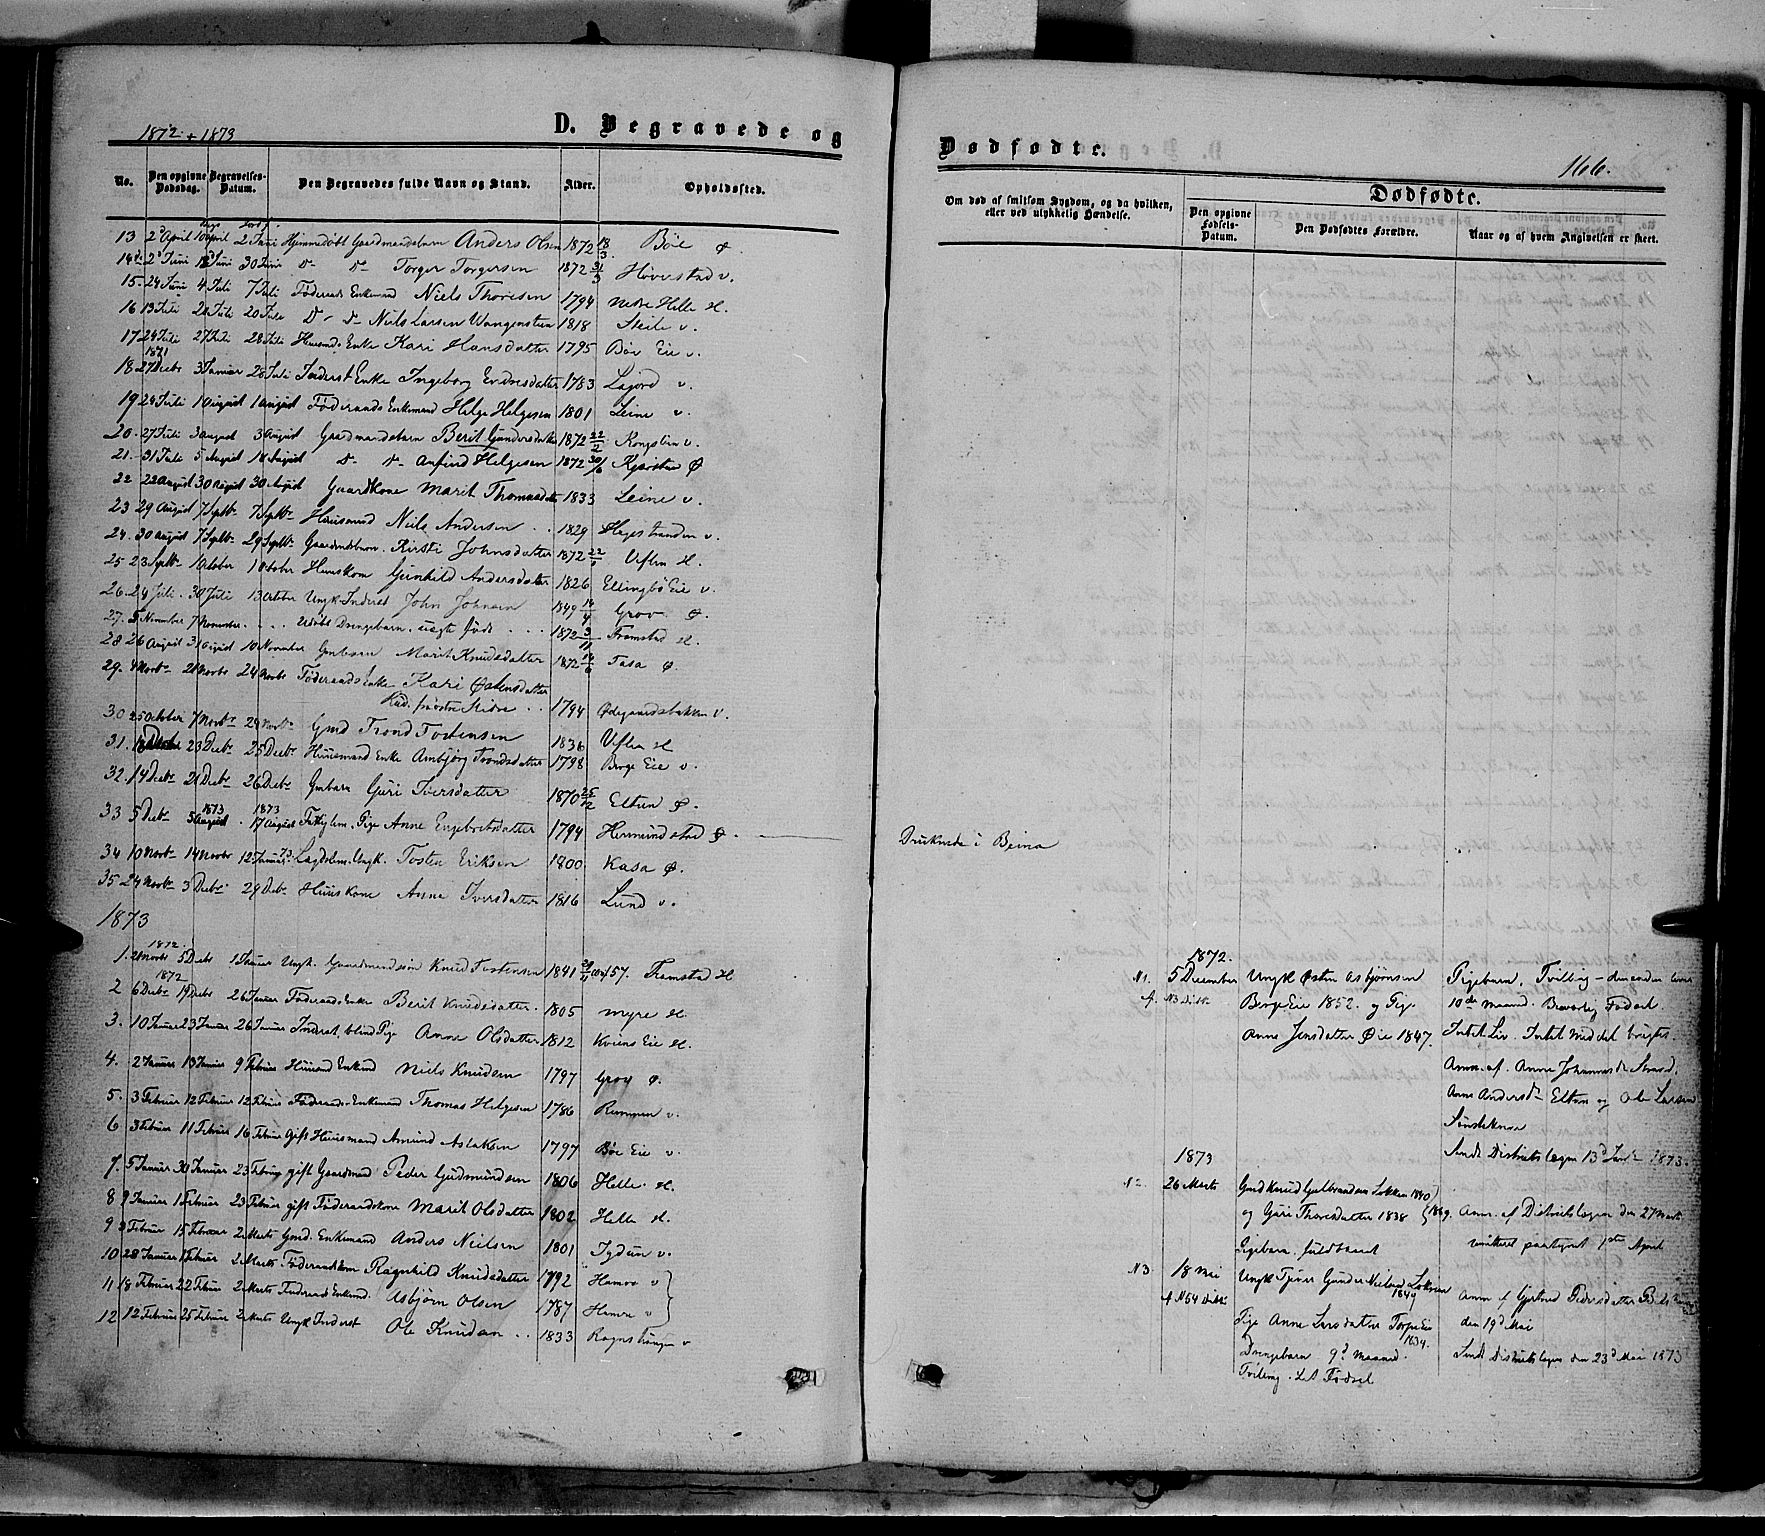 1872 + 1873
D. Begravede og
No. Den opgivne Dødsdag. Begravelses-Datum. Den Begravedes fulde Navn og Stand. Alder. Opholdssted.
13 2 April 2 Juni Hjemmedøbt Gaardmandsbarn Anders Olsen 1872 18/3 Bøe Ø
14 2 Juni 30 Juni D° D° Torger Torgersen 1872 31/3 Høverstad v.
15. 24 Juni 4 Juli 7 Juli Føderaads Enkemand Niels Thoresen 1794 Nedre Helle H.
16 13 Juli 20 Juli D° D° Niels Larsen Wangensteen 1818 Steile v.
17 24 Juli 27 Juli 28 Juli Huusm. Enke Kari Hansdatter 1795 Bøe Eie v.
1871
18 27 Decbr 3 Januar 28 Juli Inderst Enke Ingeborg Endresdatter 1783 Lajord v.
19 24 Juli 1 August 1 August Føderaads Enkemand Helge Helgesen 1801 Leine v.
20. 27 Juli 3 August 3 August Gaardmandsbarn Berit Gundersdatter 1872 22/2 Kongslien v.
21. 31 Juli 5 August 18 August D° D° Arnfind Helgesen 1872 30/6 Kjørstin Ø
22 22 August 30 August 30 August Gaardkone Marit Thomasdatter 1833 Leine v.
23 29 August 7 Septbr 7 Septbr Huusmand Niels Andersen 1829 Hagestranden v.
24. 30 August 7 Septbr 29 Septbr Gaardmdsbarn Kirsti Johnsdatter 1872 Ueflen H.
25 23 Septbr 1 October 1 October Huuskone Gunhild Andersdatter 1826 Ellingbø Eie v.
26. 24 Juli 30 Juli 13 October Ungk. Inderst John Johnsen 1849 14/4 Grov Ø.
27. 5 November 7 November Udøbt Drengebarn, uegte født 1872 3/11 Framstad H.
28 26 August 31 August 10 November Gmbarn Marit Knudsdatter 1872 14/6 Fasa Ø.
29. 4 Novbr 20 Novbr 24 Novbr Føderaads Enke Kari Østensdatter
1794 Ødegaardsbakken v.
30 25 October 7 Novbr 24 Novbr Gmd Trond Tostensen 1836 Ueflen H
31. 23 Decbr 25 Decbr Huusmand Enke Ambjørg Trondsdatter 1798 Berge Eie v.
32. 14 Decbr 20 Decbr 26 Decbr Gmbarn Guri Iversdatter 1870 25/12 Eltun Ø.
1873 1873
33 5 Decbr 5 August 17 August Fattiglem. Pige Anne Engebretsdatter 1794 Hermundstad Ø. Druknede i Beina
34 10 Novbr 14 Novbr 12 Januar 73 Lægdslem. Ungk. Tosten Eriksen 1800 Kasa Ø.
35 24 Novbr 3 Decbr 29 Decbr Huuskone Anne Iversdatter 1816 Lund v.
1873
1872.
1. 28 Novbr 5 Decbr 1 Januar Ungk. Gaardmandssøn Knud Tostensen 1841 Framstad H
1872
2 6 Decbr 19 Decbr 26 Januar Føderaads Enke Berit Knudsdatter 1805 Myre H.
3. 10 Januar 23 Januar 26 Januar Inderst, blind Pige Anne Olsdatter 1812 Kviens Eie H.
4. 2 Januar 13 Januar 9 Februar Huusmd Enkemd Niels Knudsen 1797 Grov Ø.
5. 3 Februar 12 Februar 12 Februar Føderaads Enkemand Thomas Helgesen 1786 Rummen v.
6 3 Februar 11 Februar 16 Februar Gift Huusmand Amund Aslaksen 1797 Bøe Eie v.
7. 5 Januar 30 Januar 23 Februar gift Gaardmand Peder Gudmundsen 1806 Helle H.
8 9 Januar 1 Februar 23 Februar gift Føderaadskone Marit Olsdatter 1802 Helle H.
9 9 Februar 15 Februar 2 Marts Gmd. Enkemand Anders Nielsen 1801 v.
10 28 Januar 1 Februar 2 Marts Føderaadskone Ragnhild Knudsdatter 1792 Hamre v
11 18 Februar 22 Februar 2 Marts Føderaads Enkemd. Asbjørn Olsen 1787 Hamre v
12 12 Februar 25 Februar 2 Marts Ungk Inderst Ole Knudsen 1833 v
Dødfødte.
166.
Om død af smitsom Sygdom, og da hvilken, eller ved ulykkelig Hændelse.
Dødfødte.
Den opgivne Fødsels-Datum. Den Dødfødtes Forældre. Naar og af hvem Angivelsen er skeet.
1872.
N1. 5 December Ungk Østen Asbjørnsen Pigebarn, Tvilling - den anden lever
Berge Eie 1852. og Pige 10de Maaned. Besværlig Fødsel.
Anne Jensdatter Øie 1847. Intet Liv. Intet Middel brugt.
Anm. af. Anne Johannesdr Strand,
Anne Andersdr Eltun og Ole Larsen
Søndekasa
Sendt Districtslægen 13d Jan 1873.
1873
N2. 26 Marts Gmd Knud Gulbrandsen Løkken 1840
og Guri Thoresdatter 1838 Anm. af Districtslægen den 27 Marts
Pigebarn. fuldbaaret 1ste April
N3 18 Mai Ungk Tjener Gunder Nielsen 1849 Anm. af Gjertrud Pedersdatter
Pige Anne Larsdatter Torpe Eie den 19d Mai
1834.
Drengebarn 9d Maaned. Sendt Districtslægen den 23d Mai 1873
Tvilling. Let Fødsel